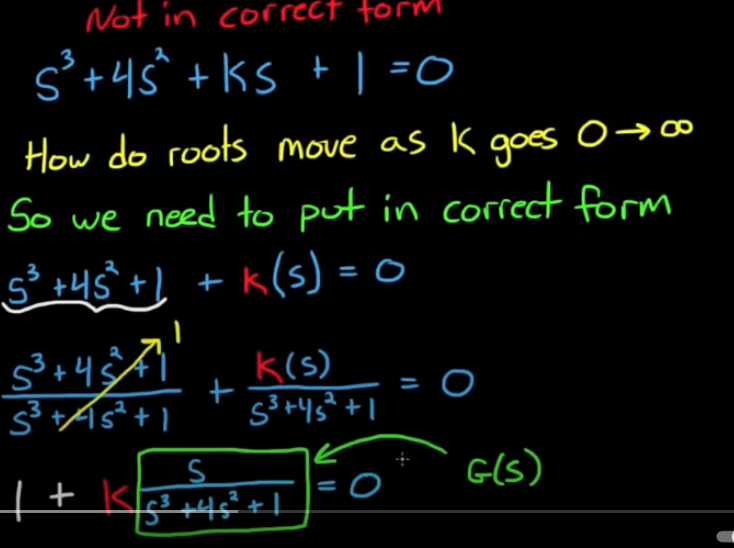 Not in correct form
s³ + 4s² + Ks + 1 = 0
How do roots move as K goes 0 → ∞
So we need to put in correct form
s³ + 4s² + 1 + K(s) = 0
(s³ + 4s² + 1)/(s³ + 4s² + 1) 1 + K(s)/(s³ + 4s² + 1) = 0
1 + K s/(s³ + 4s² + 1) = 0 G(s)